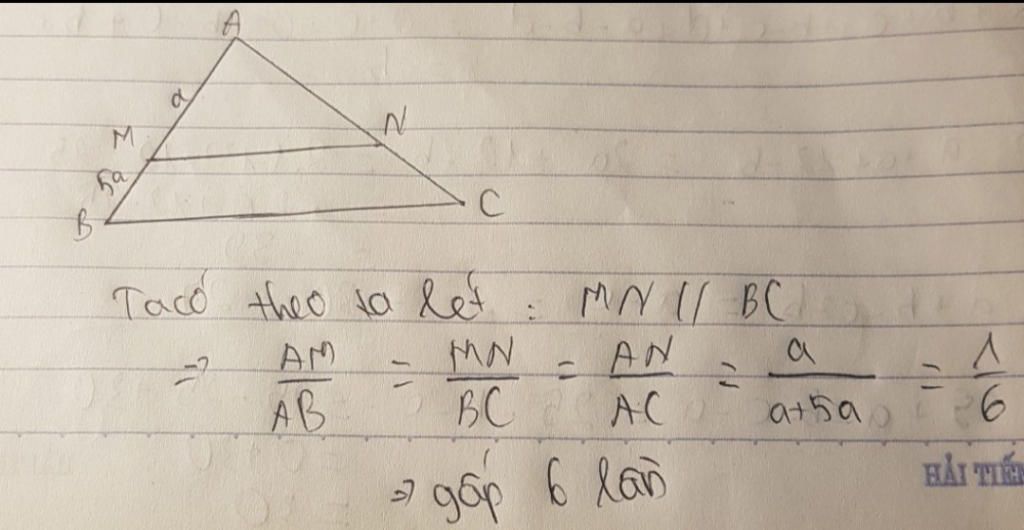 A
a
M N
5a
B C
Ta có theo ta lét : MN // BC
=> AM/AB = MN/BC = AN/AC = a/a+5a = 1/6
=> gấp 6 lần
HẢI TIẾN